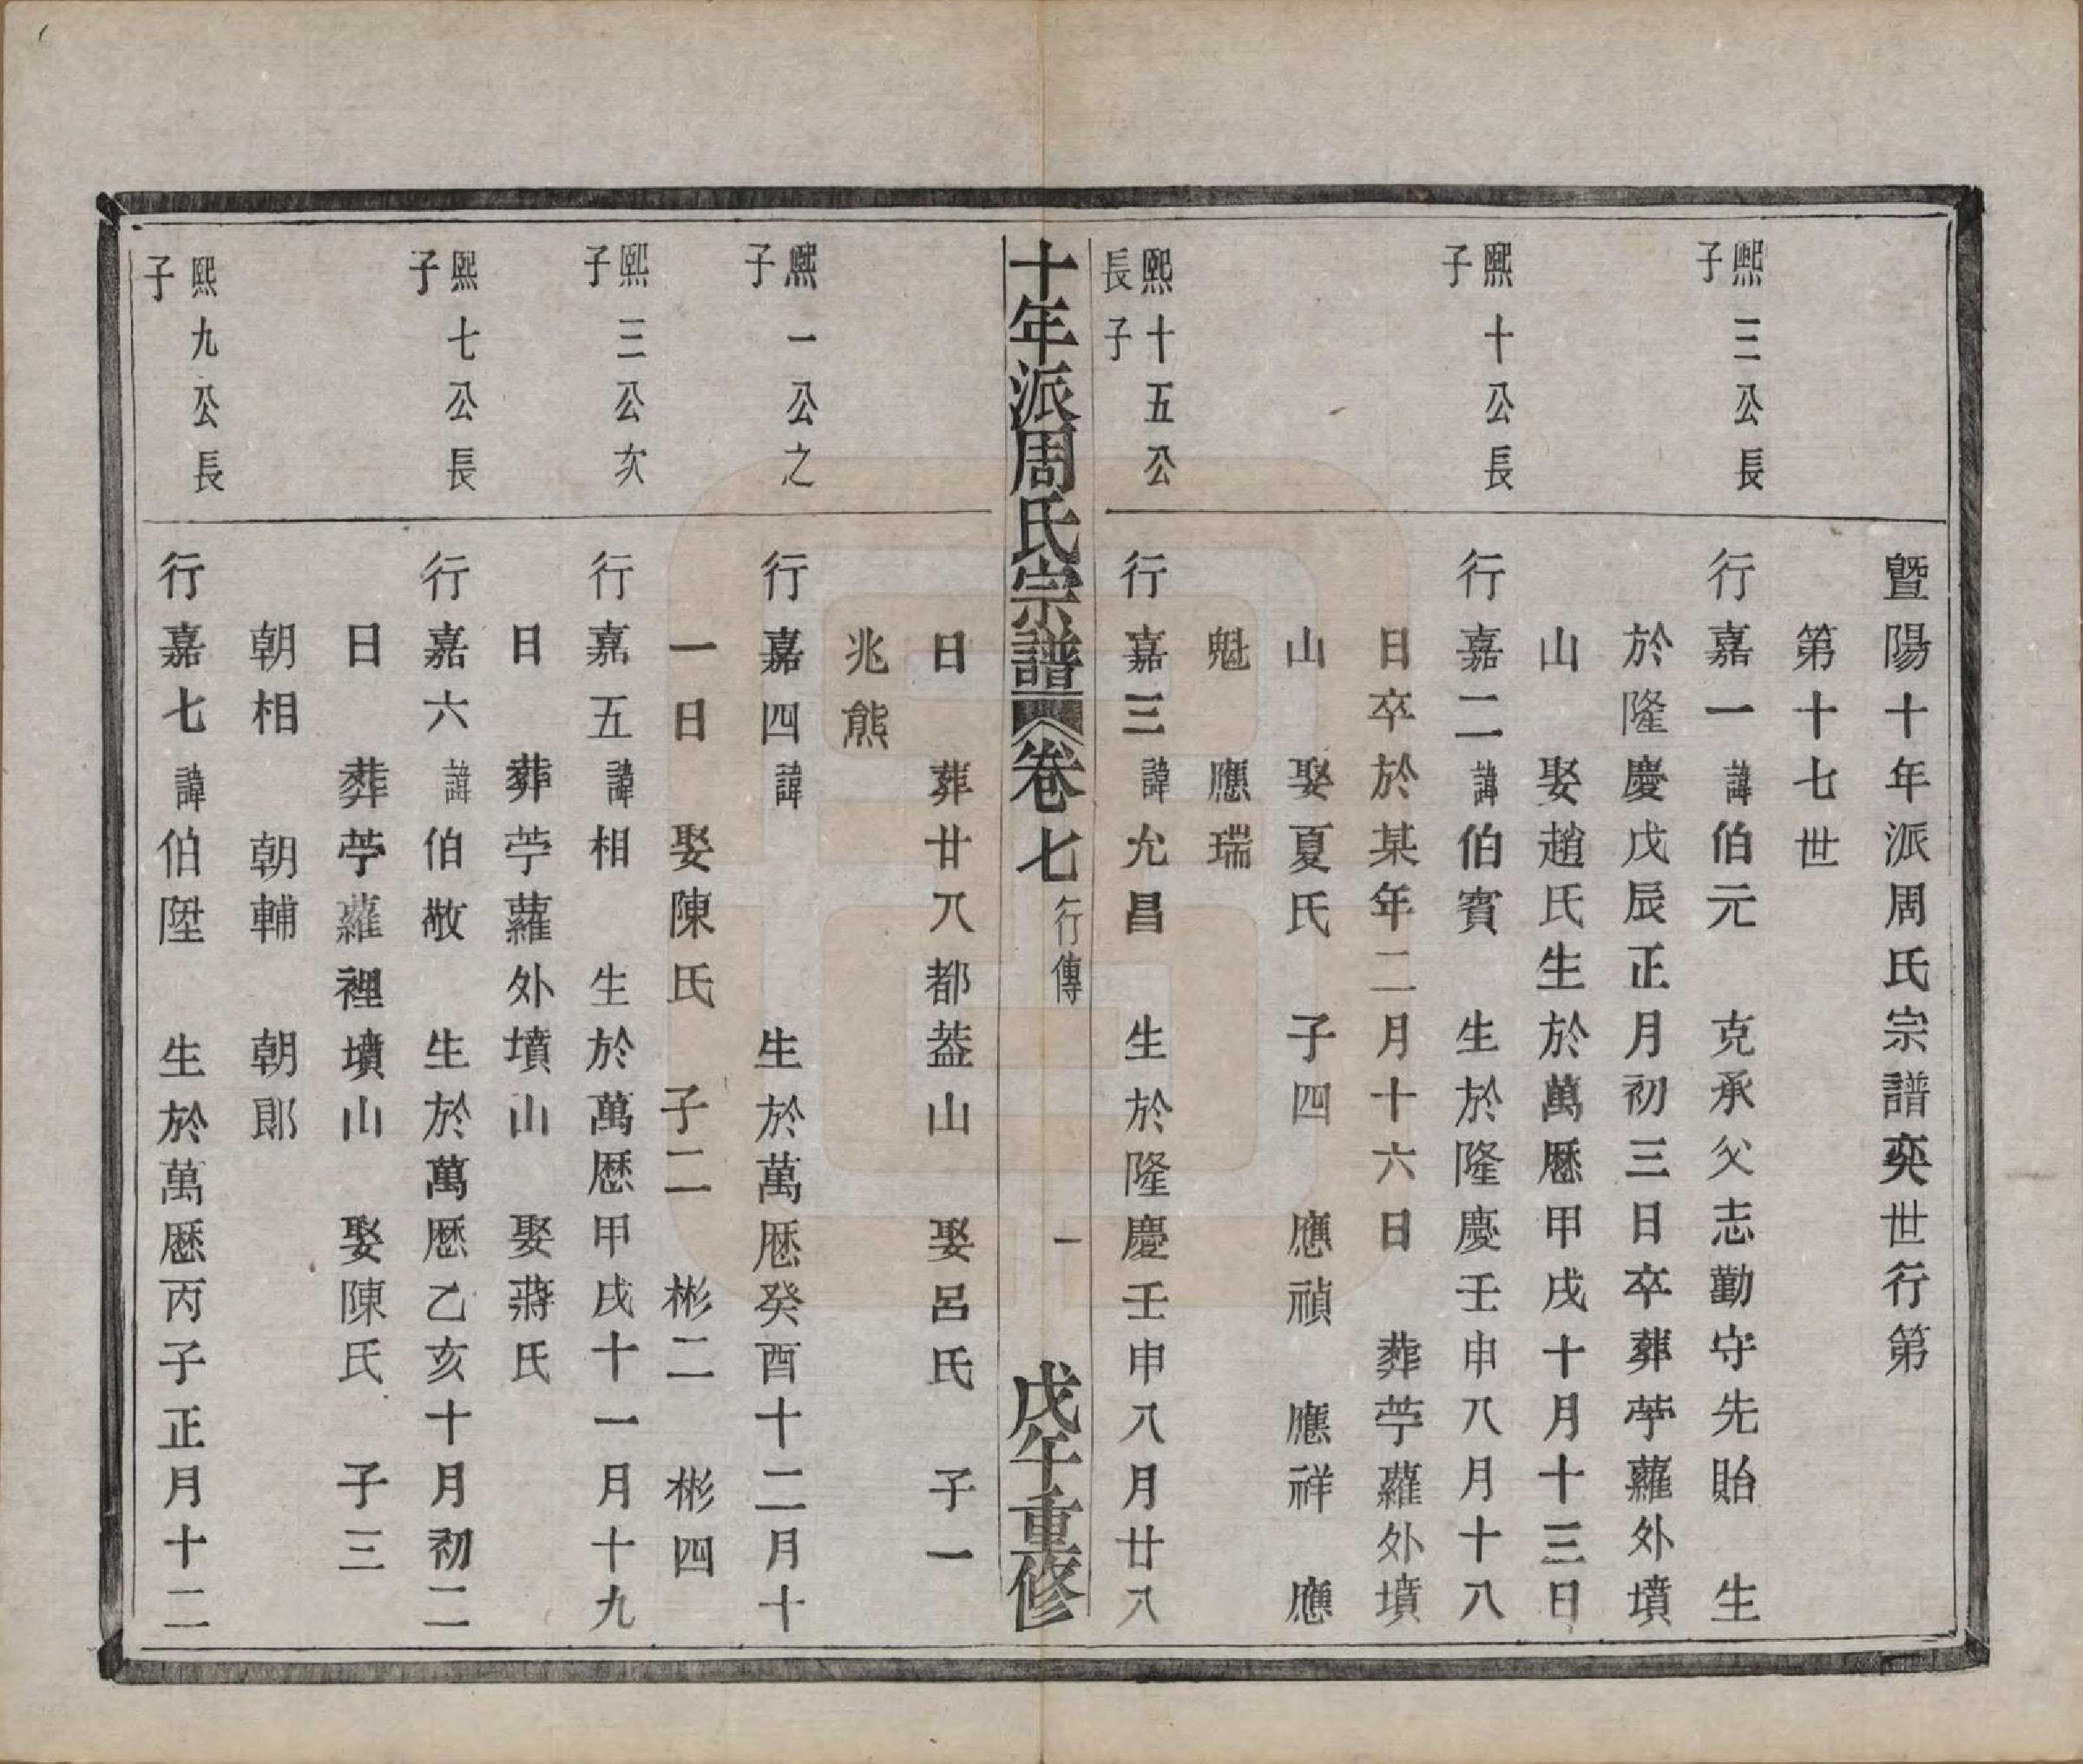 暨陽十年派周氏宗譜奕世行第
第十七世
熙三公長子
行嘉一諱伯元　克承父志勤守先貽　生
於隆慶戊辰正月初三日卒葬苧蘿外墳
山　娶趙氏生於萬厯甲戌十月十三日
熙十公長子
行嘉二諱伯賓　生於隆慶壬申八月十八
日卒於某年二月十六日　葬苧蘿外墳
山　娶夏氏　子四　應禎　應祥　應
魁　應瑞
熙十五公長子
行嘉三諱允昌　生於隆慶壬申八月廿八
十年派周氏宗譜　卷七　行傳　一　戊午重修
日　葬廿八都葢山　娶呂氏　子一
兆熊
熙一公之子
行嘉四諱　　生於萬厯癸酉十二月十
一日　娶陳氏　子二　彬二　彬四
熙三公次子
行嘉五諱相　生於萬厯甲戌十一月十九
日　葬苧蘿外墳山　娶蔣氏
熙七公長子
行嘉六諱伯敬　生於萬厯乙亥十月初二
日　葬苧蘿裡墳山　娶陳氏　子三
朝相　朝輔　朝郎
熙九公長子
行嘉七諱伯陞　生於萬厯丙子正月十二